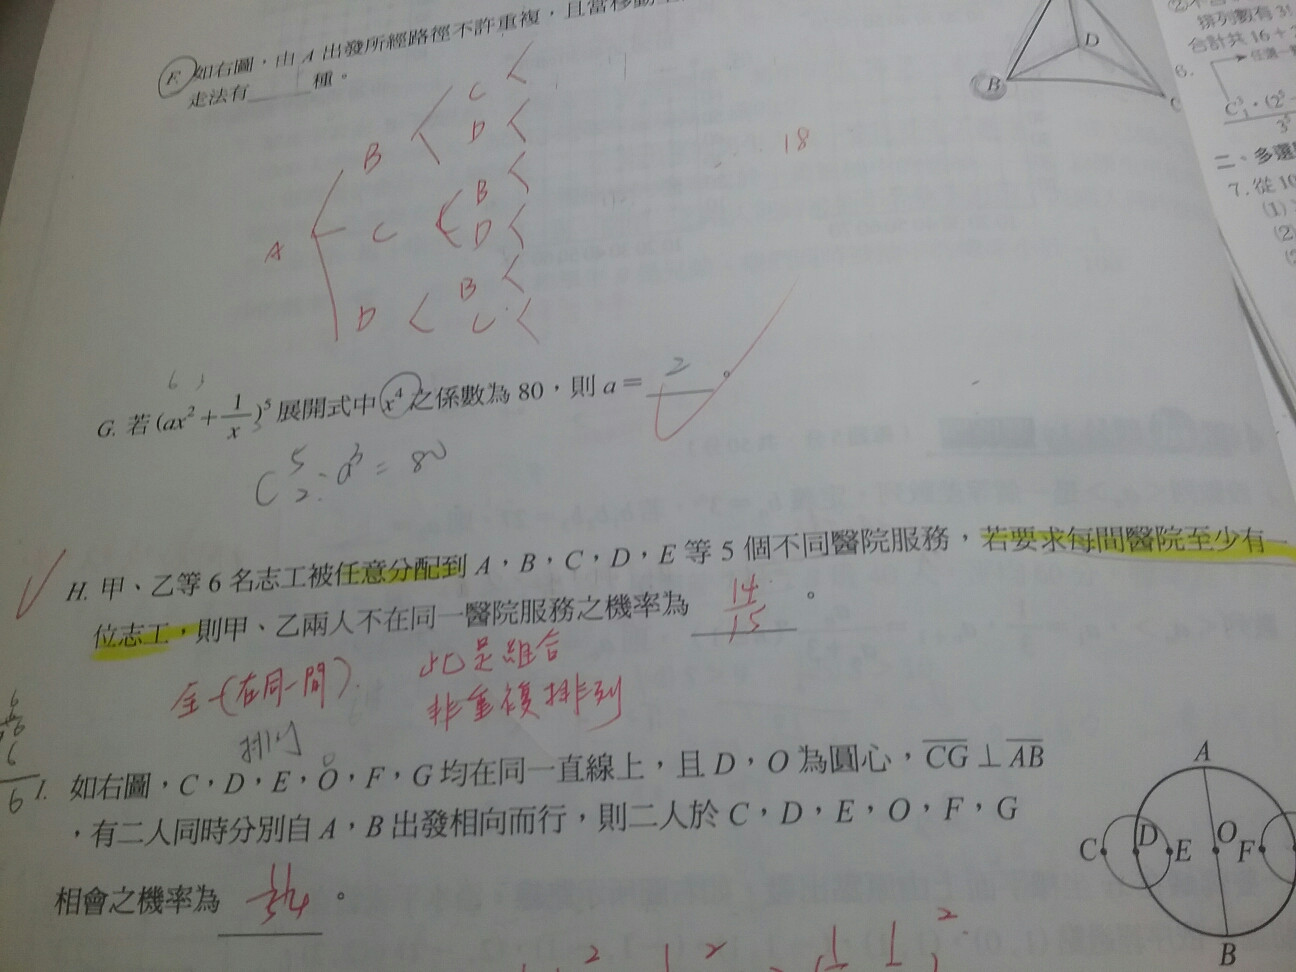 F. 如右圖,由 A 出發所經路徑不許重複,且當移動
走法有 種。
A
B
C
D
C
D
B
D
B
C
18
D
B
C
6.
二、多選
7. 從 10
(1)
(2)
排列數有 31
合計共 16 +
G. 若 (ax² + 1/x)⁵ 展開式中 x⁴ 之係數為 80,則 a = 2 。
C 5 2 · a³ = 80
H. 甲、乙等 6 名志工被任意分配到 A,B,C,D,E 等 5 個不同醫院服務,若要求每間醫院至少有一
位志工,則甲、乙兩人不在同一醫院服務之機率為 14/15 。
全-(在同一間)
此是組合
非重複排列
排列
I. 如右圖,C,D,E,O,F,G 均在同一直線上,且 D,O 為圓心,CG ⊥ AB
,有二人同時分別自 A,B 出發相向而行,則二人於 C,D,E,O,F,G
相會之機率為 11/54 。
A
C D E O F
B